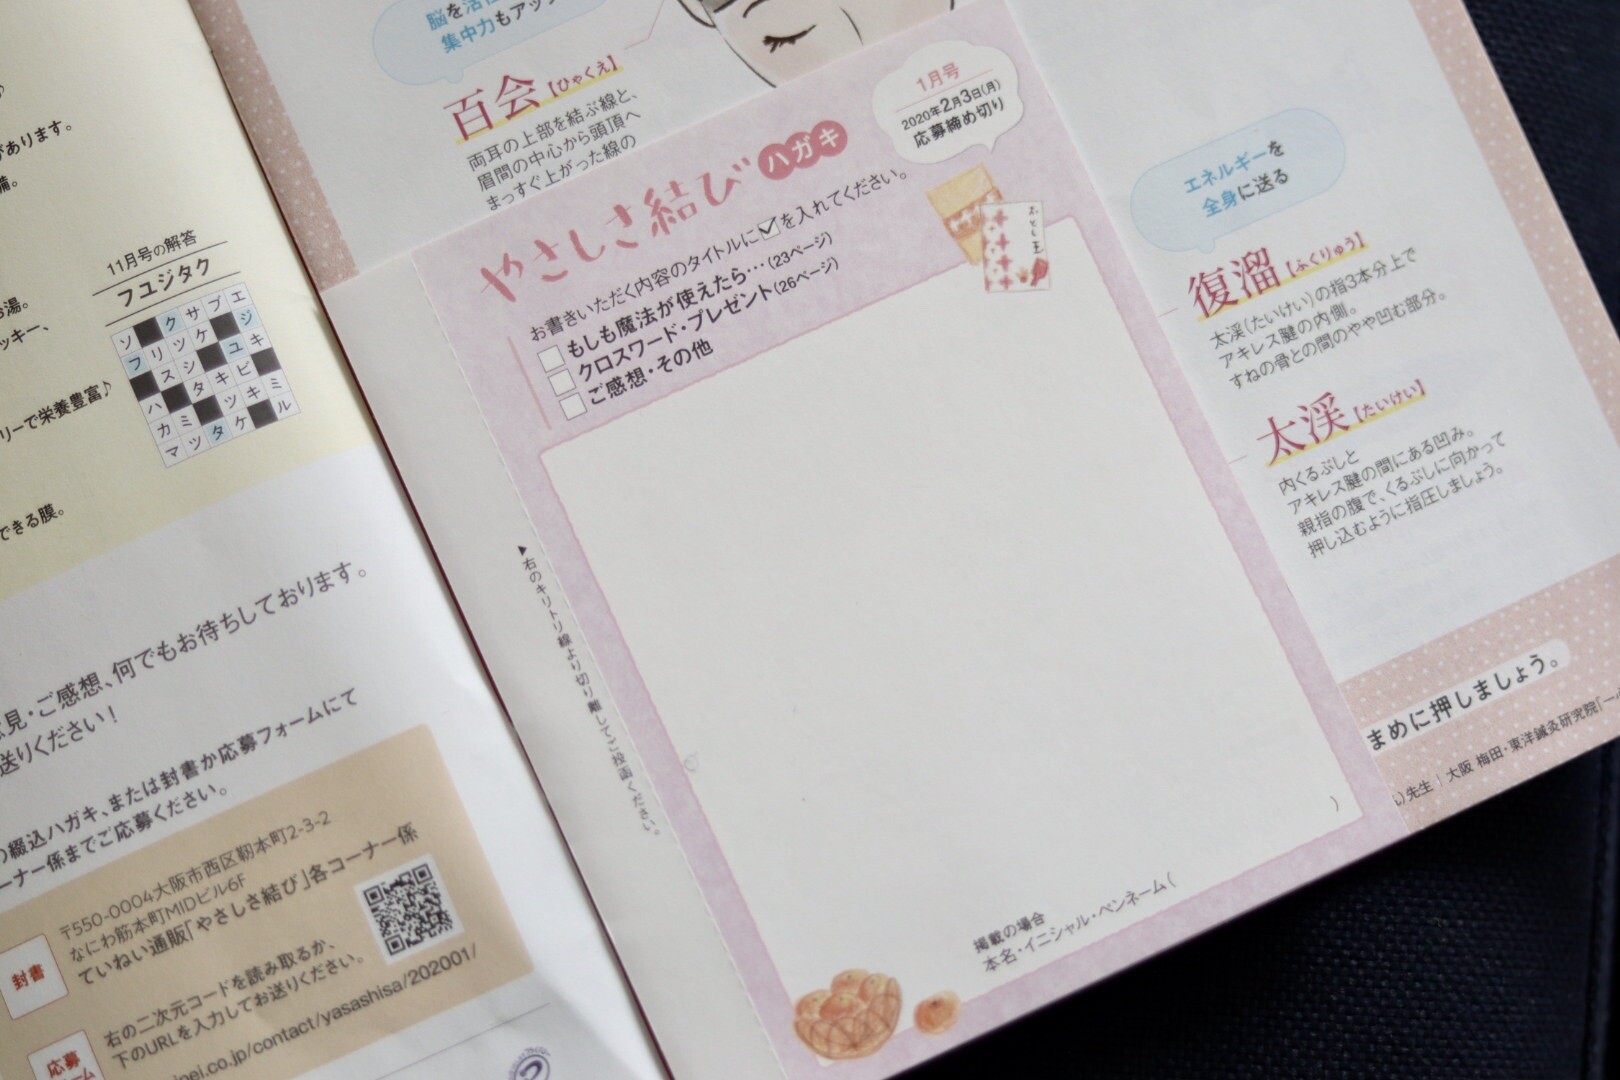 があります。
湯。
ッキー、
リーで栄養豊富♪
できる膜。
11月号の解答
フユジタク
ソ クサブエ
フリツケ ジ
スシ ユキ
ハ タキビ
カミ ツキミ
マツタケ ル
見・ご感想、何でもお待ちしております。
送りください！
綴込ハガキ、または封書か応募フォームにて
ーナー係までご応募ください。
封書
〒550-0004大阪市西区靭本町2-3-2
なにわ筋本町MIDビル6F
ていねい通販「やさしさ結び」各コーナー係
応募
右の二次元コードを読み取るか、
下のURLを入力してお送りください。
pei.co.jp/contact/yasashisa/202001/
脳を活
集中力もアッ
百会【ひゃくえ】
両耳の上部を結ぶ線と、
眉間の中心から頭頂へ
まっすぐ上がった線の
やさしさ結びハガキ
1月号
2020年2月3日(月)
応募締め切り
お書きいただく内容のタイトルに☑を入れてください。
□もしも魔法が使えたら…(23ページ)
□クロスワード・プレゼント(26ページ)
□ご感想・その他
▶右のキリトリ線より切り離してご投函ください。
掲載の場合
本名・イニシャル・ペンネーム( )
エネルギーを
全身に送る
復溜【ふくりゅう】
太渓(たいけい)の指3本分上で
アキレス腱の内側。
すねの骨との間のやや凹む部分。
太渓【たいけい】
内くるぶしと
アキレス腱の間にある凹み。
親指の腹で、くるぶしに向かって
押し込むように指圧しましょう。
まめに押しましょう。
)先生｜大阪 梅田・東洋鍼灸研究院「一